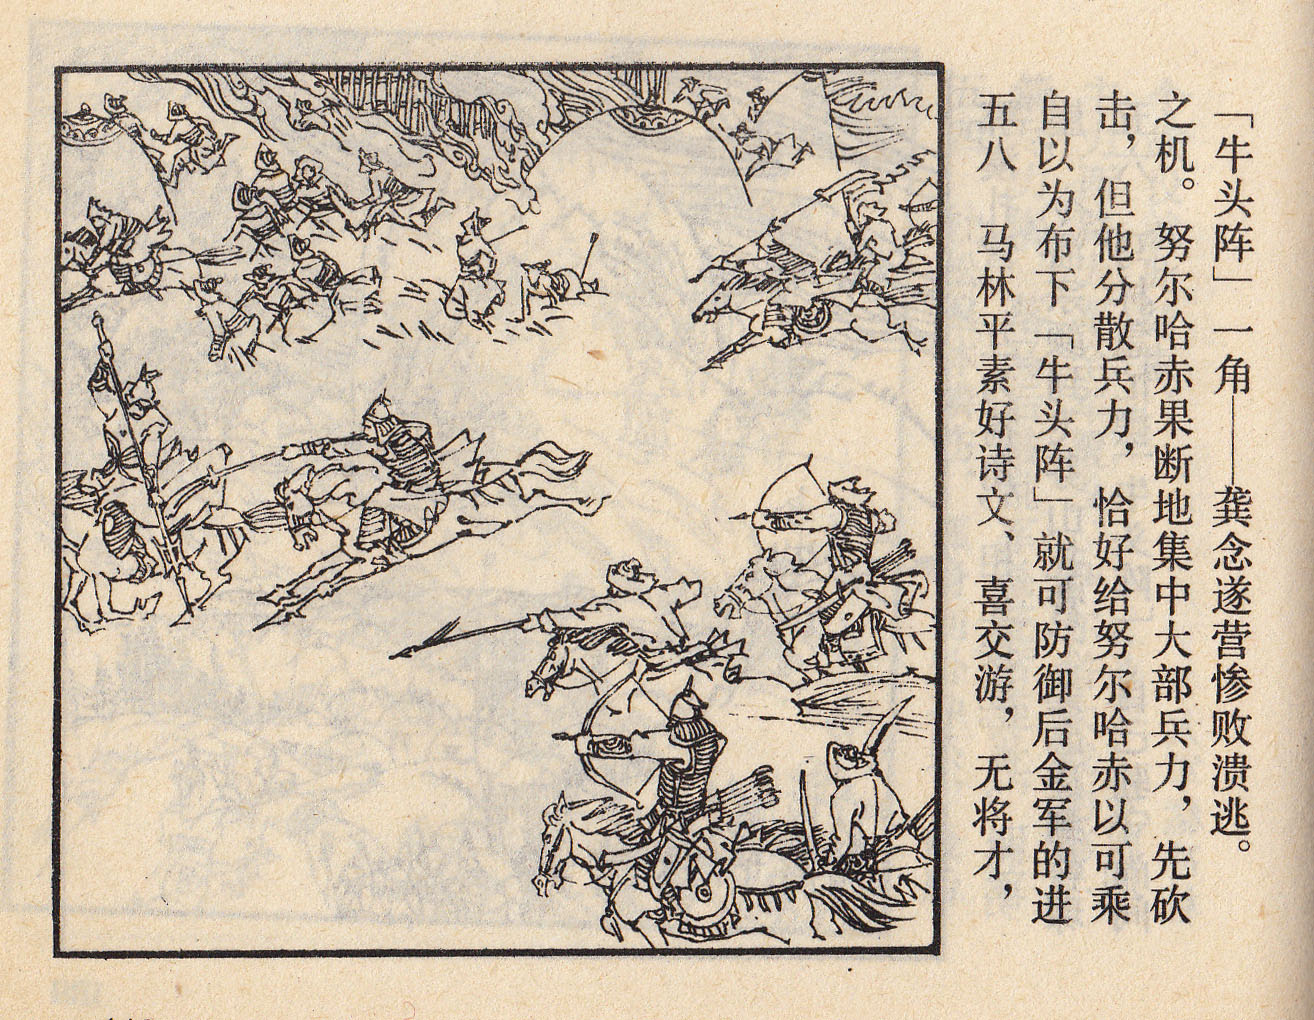 五八　马林平素好诗文、喜交游，无将才，
自以为布下「牛头阵」就可防御后金军的进
击，但他分散兵力，恰好给努尔哈赤以可乘
之机。努尔哈赤果断地集中大部兵力，先砍
「牛头阵」一角——龚念遂营惨败溃逃。